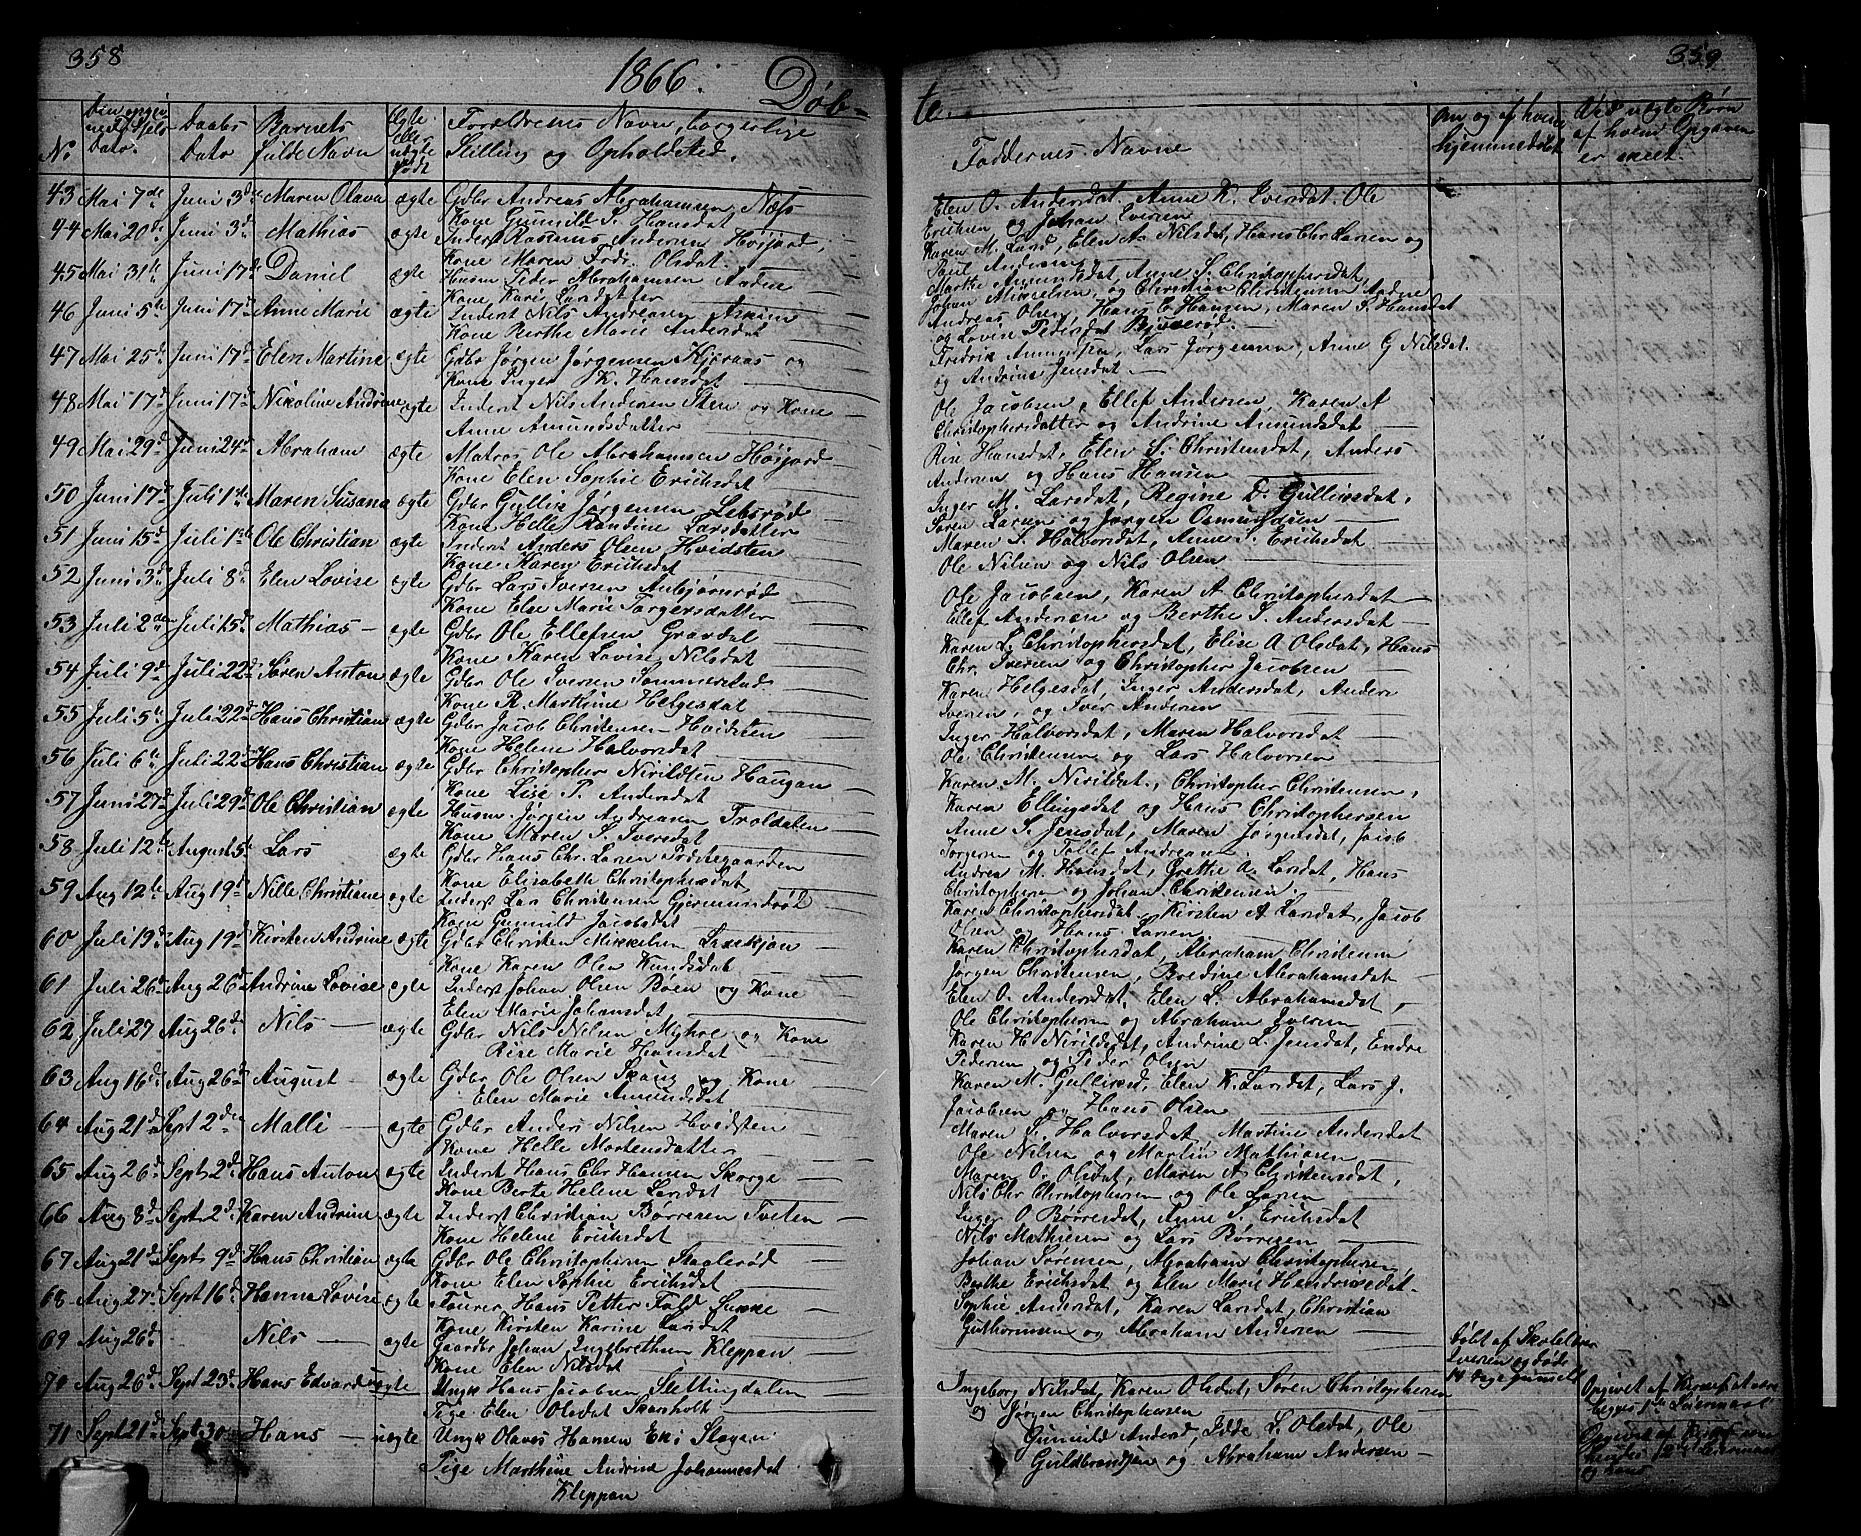 358
1866. Døb-
No
Dato
Daabs Dato
Barnets fulde Navn
Ægte eller uægte født
Forældrenes Navn, borgerlige Stilling og Opholdsted.
43 Mai 7de Juni 3die Maren Olava ægte Gdbr Andreas Abrahamsen Næss
Kone Gunnild S. Hansdat
44 Mai 20de Juni 3d Mathias ægte Inderst Rasmus Andersen Høijord,
Kone Maren Fred. Olsdat.
45 Mai 31te Juni 17d Daniel ægte Husm Peder Abrahamsen Aadne
Kone Kari Larsdatter
46 Juni 5te Juni 17d Anne Marie ægte Inderst Nils Andreasen
Kone Berthe Marie Andersdat
47 Mai 25d Juni 17d Elen Martine ægte Gdbr Jørgen Jørgensen Kjeraas og
Kone Inger K. Hansdat
48 Mai 17d Juni 17d Nikoline Andrine ægte Inderst Nils Andersen Sten og Kone
Anne Amundsdatter
49 Mai 29d Juni 24d Abraham ægte Matros Ole Abrahamsen Høijord
Kone Elen Sophie Erichsdat
50 Juni 17d Juli 1ste Maren Susana ægte Gdbr Gullik Jørgensen Lebsrød
Kone Helle Randine Larsdatter
51 Juni 15d Juli 1ste Ole Christian ægte Inderst Anders Olsen Hvidsten
Kone Karen Erichsdat
52 Juni 3d Juli 8d Elen Lovise ægte Gdbr Lars Iversen Anbjørnrød
Kone Else Marie Torgersdatter
53 Juli 2den Juli 15d Mathias ægte Gdbr Ole Ellefsen Gravdal
Kone Karen Lovise Nilsdat
54 Juli 9d Juli 22d Søren Anton ægte Gdbr Ole Iversen Sommerstad
Kone R. Marthine Helgesdat
55 Juli 5te Juli 22d Hans Christian ægte Gdbr Jacob Christensen Hvidsten
Kone Helene Halvorsdat
56 Juli 6te Juli 22d Hans Christian ægte Gdbr Christopher Nirildsen Haugan
Kone Lise P. Andersdat
57 Juni 27d Juli 29d Ole Christian ægte Husm. Jørgen Andreasen Troldalen
Kone Maren S. Iversdat
58 Juli 12te August 5te Lars ægte Gdbr Hans Chr. Larsen Prestegaarden
Kone Elisabeth Christophersdat
59 Aug 12te Aug 19d Nille Christiane ægte Inderst Lars Christensen Gjermundrød
Kone Gunnild Jacobsdat
60 Juli 19d Aug 19d Kirsten Andrine ægte Gdbr Christen Mikkelsen
Kone Karen Olsen Knudsdat
61 Juli 26d Aug 26d Andrine Lovise ægte Inderst Johan Olsen Boen og Kone
Elen Marie Johansdat
62 Juli 27 Aug 26de Nils ægte Gdbr Nils Nilsen Myhre og Kone
Rise Marie Hansdat
63 Aug 16d Aug 26d August ægte Gdbr Ole Olsen Skaug og Kone
Elen Marie Amundsdat
64 Aug 21d Sept 2den Malli ægte Gdbr Anders Nilsen Hvidsten
Kone Helle Mortensdatter
65 Aug 26d Sept 2d Hans Anton ægte Inderst Hans Chr Hansen Skorge
Kone Berte Helene Larsdat
66 Aug 8d Sept 2d Karen Andrine ægte Inderst Christian Børresen Tveten
Kone Helene Erichsdat
67 Aug 21d Sept 9d Hans Christian ægte Gdbr Ole Christophersen Staalerød
Kone Elen Sophie Erichsdat
68 Aug 27d Sept 16d Hanna Lovise ægte Hans Petter Fold Sukke
Kone Kirsten Karine Larsdat
69 Aug 26d Nils ægte Gaardbr Johan Ingebrethsen Kleppan
Kone Elen Nilsdat
70 Aug 26d Sept 23d Hans Edvard uægte Ungk Hans Jacobsen Slettingdalen
Pige Elen Olsdat Skarsholt
71 Sept 21d Sept 30 Hans uægte Ungk Olaves Hansen Eki Slagen
Pige Marthine Andrine Johannesdat
Kleppan
359
te.
Faddernes Navne
Om og af hvem hjemmedøbt
Ved uægte Børn af hvem Opgaven er skeet.
Elen O. Andersdat, Anne K. Iversdat. Ole
Erichsen og Johan Iversen
Karen M. Larsd, Elen A. Nilsdat, Hans Chr Larsen og
Paul Andersen
Marthe Amundsdat, Anne S. Christophersdat,
Johan Mikkelsen, og Christian Christensen Aadne
Andreas Olsen, Hans E Hansen, Maren S. Hansdat
og Lovise Pedersdat Bjuerød.
Fredrik Amundsen, Lars Jørgensen, Anne G Nilsdat.
og Andrine Jensdat
Ole Jacobsen, Ellef Andersen, Karen A
Christophersdatter og Andrine Amundsdat
Rise Hansdat, Elen S. Christensdat, Anders
Andersen og Hans Hansen
Inger M. Larsdat, Regine D. Gulliksdat.
Søren Larsen og Jørgen Osmundsen
Maren S. Halvorsdat, Anne S. Erichsdat
Ole Nilsen og Nils Olsen
Ole Jacobsen, Karen A Christophersdat
Ellef Andersen og Berthe S. Andersdat
Karen L. Christophersdat, Elise A Olsdat, Hans
Chr. Iversen og Christopher Jacobsen
Karen Helgesdat, Inger Andersdat, Anders
Iversen, og Iver Andersen
Inger Halvorsdat, Maren Halvorsdat
Ole Christensen og Lars Halvorsen
Karen M. Nirildat, Christopher Christensen,
Karen Ellingsdat og Hans Christophersen
Anne S. Jensdat, Maren Jørgensdat, Jacob
Jørgensen og Tollef Andreasen
Andrea M. Hansdat, Grethe A. Larsdat, Hans
Christophersen og Johan Christensen.
Karen Christophersdat, Kirsten A Larsdat, Jacob
Olsen og Hans Larsen
Karen Christophersdat, Abraham Christensen
Jørgen Christensen, Bredine Abrahamsdat
Elen O. Andersdat, Elen L. Abrahamsdat,
Ole Christophersen og Abraham Iversen
Karen H. Nirildsdat, Andrine L. Jensdat, Endre
Pedersen og Peder Olsen
Karen M. Gulliksd, Elen K. Larsdat, Lars J.
Jacobsen og Hans Olsen
Maren S. Halvorsdat Martine Andersdat
Ole Nilsen og Martin Mathiasen
Maren O. Olsdat, Maren A Christensdat,
Nils Chr Christophersen og Ole Larsen
Inger O Børresdat, Anne S. Erichsdat
Nils Mathisen og Lars Børresen
Johan Sørensen, Abraham Christophersen,
Berthe Erichsdat og Elen Marie Hendriksdat
Sophie Andersdat, Karen Larsdat, Christian
Guthormsen og Abraham Andersen
døbt af Skolelærer Iversen og døde 14 Dage gammelt
Ingeborg Nilsdat, Karen Olsdat, Søren Christophersen
og Jørgen Christophersen
Opgivet af
begges 1ste Leiermaal
Gunnild Andersd, Idde L. Olsdat, Ole
Guldbrandsen og Abraham Andersen
Opgivet af